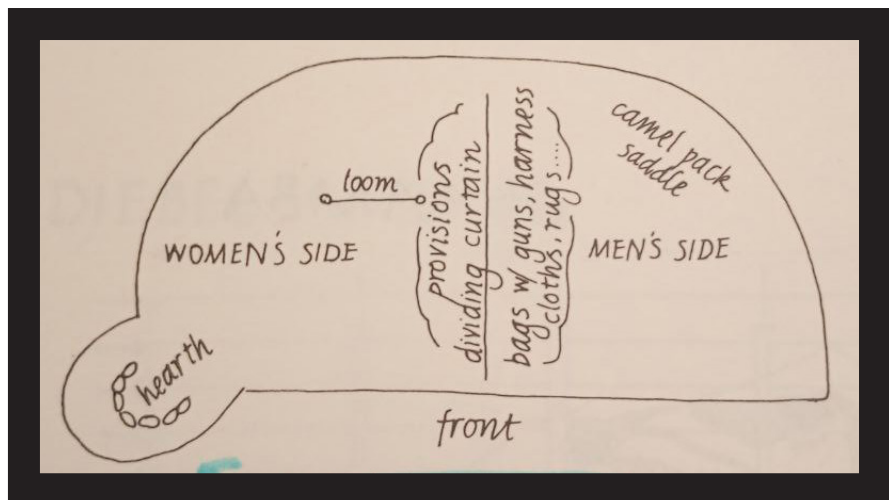 loom
WOMEN'S SIDE
hearth
provisions
dividing curtain
bags w/ guns, harness
cloths, rugs....
camel pack
saddle
MEN'S SIDE
front